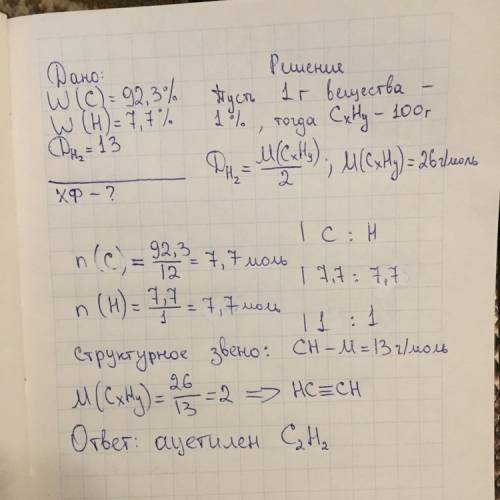 Дано:
W(C)=92,3%
W(H)=7,7%
D_H₂=13
ХФ-?
Решение
Пусть 1г вещества -
1%, тогда CxHy-100г
D_H₂=M(CxHy)/2; M(CxHy)=26г/моль
n(C)=92,3/12=7,7моль
n(H)=7,7/1=7,7моль
| C : H
| 7,7 : 7,7
| 1 : 1
Структурное звено: CH-M=13г/моль
M(CxHy)=26/13=2 => HC≡CH
Ответ: ацетилен C₂H₂